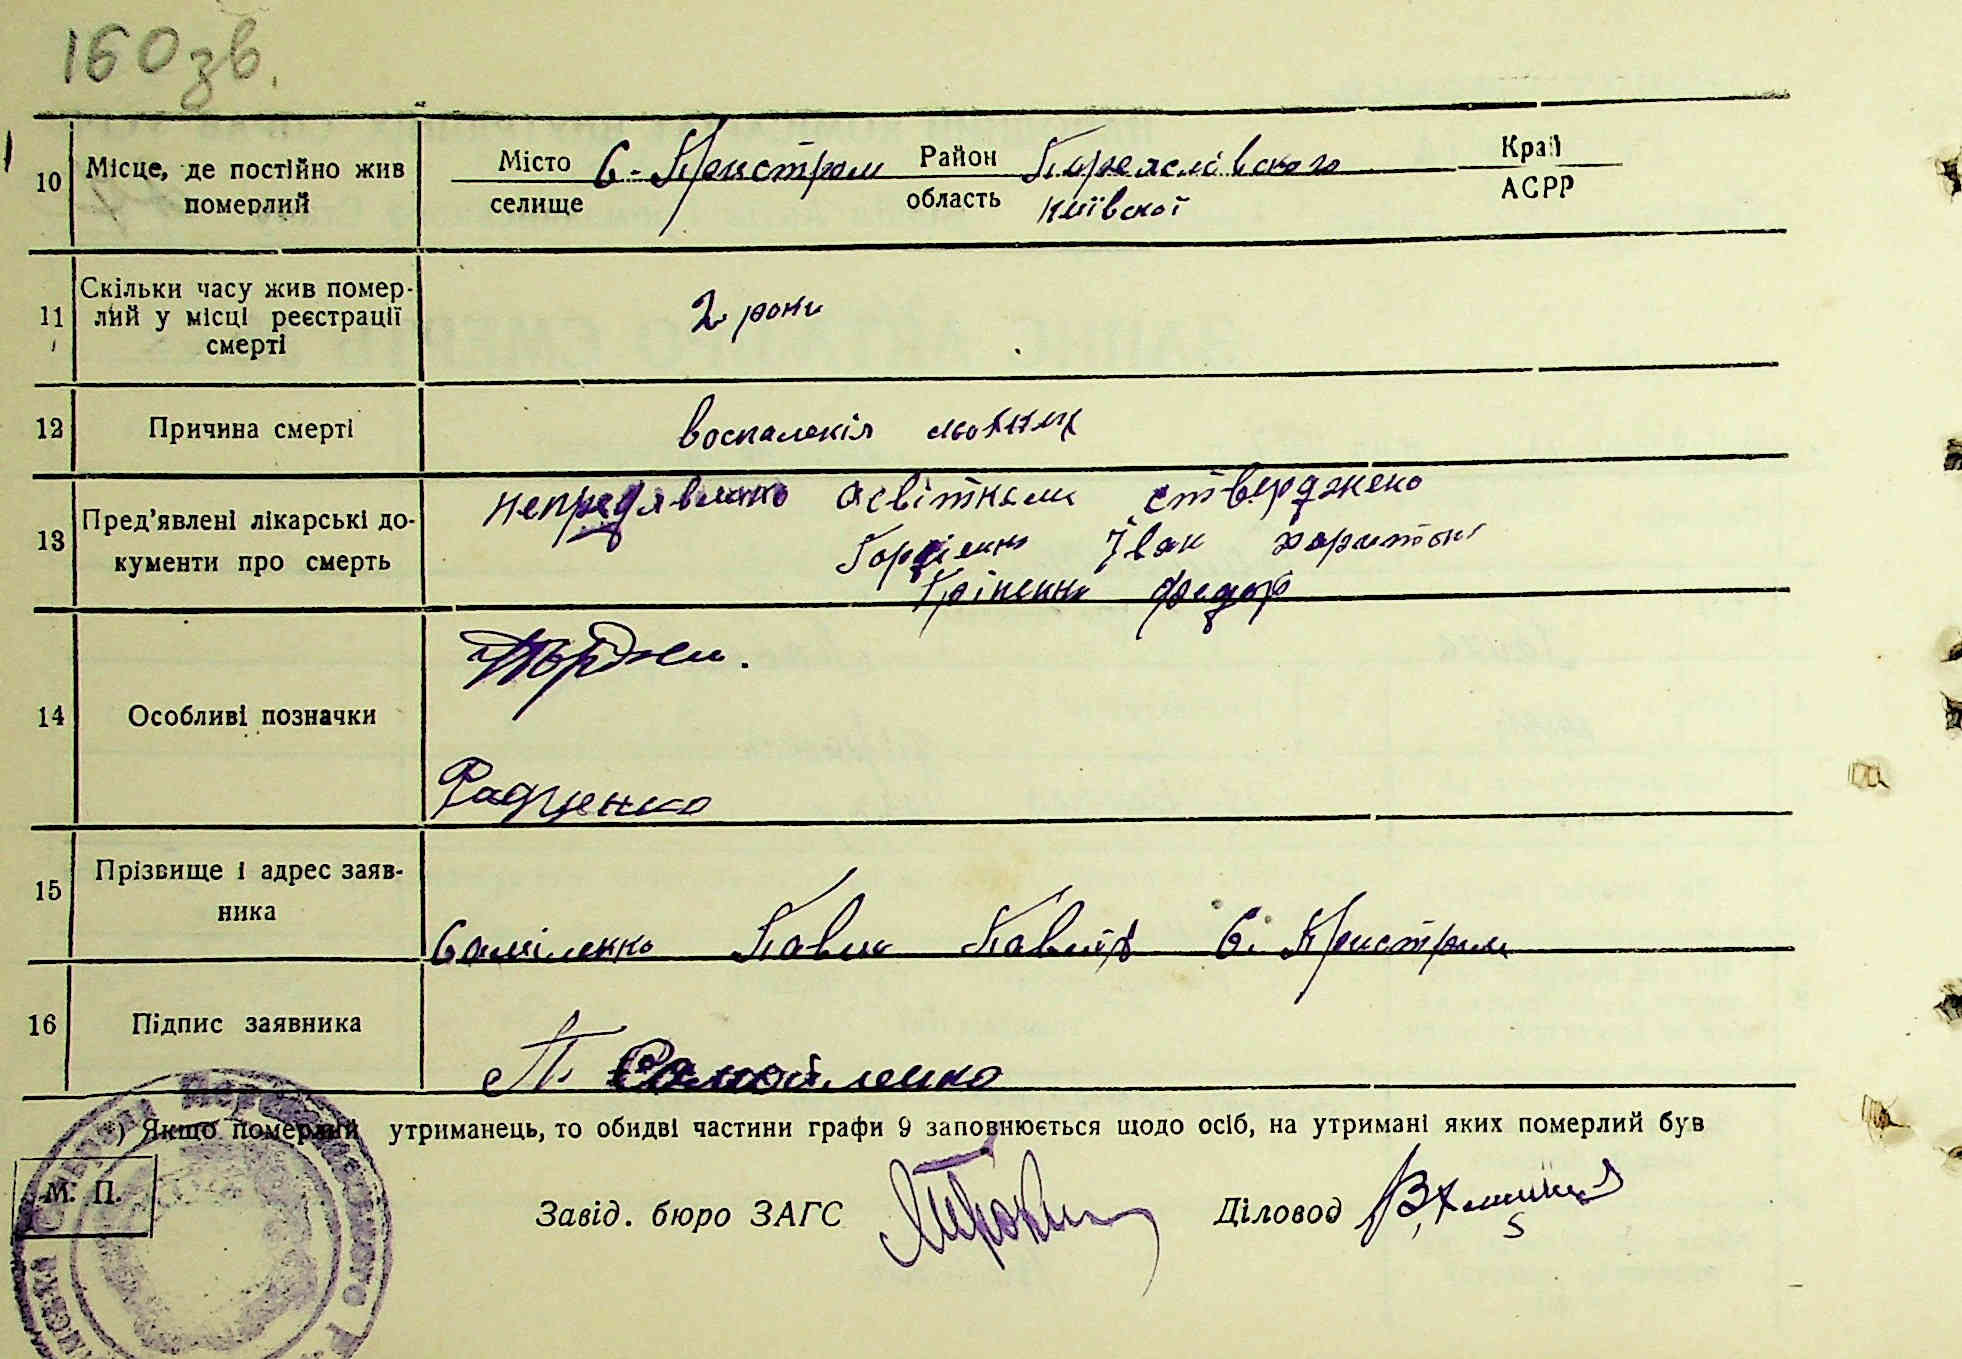 160 зв.
10 Місце, де постійно жив померлий
Місто селище С. Пристром Район область Переяслівского Київскої Край АСРР
11 Скільки часу жив помер-
лий у місці реєстрації
смерті
2 роки
12 Причина смерті
воспаленія
13 Пред'явлені лікарські до-
кументи про смерть
непредявлено освітками стверджено
Гордіенко Іван Харитон
Федор
14 Особливі позначки
Радченко
15 Прізвище і адрес заяв-
ника
Саміленко Павло Павлов С. Пристром
16 Підпис заявника
П. Самойленко
*) Якщо померлий утриманець, то обидві частини графи 9 заповнюється щодо осіб, на утримані яких померлий був
М. П.
Завід. бюро ЗАГС
Діловод